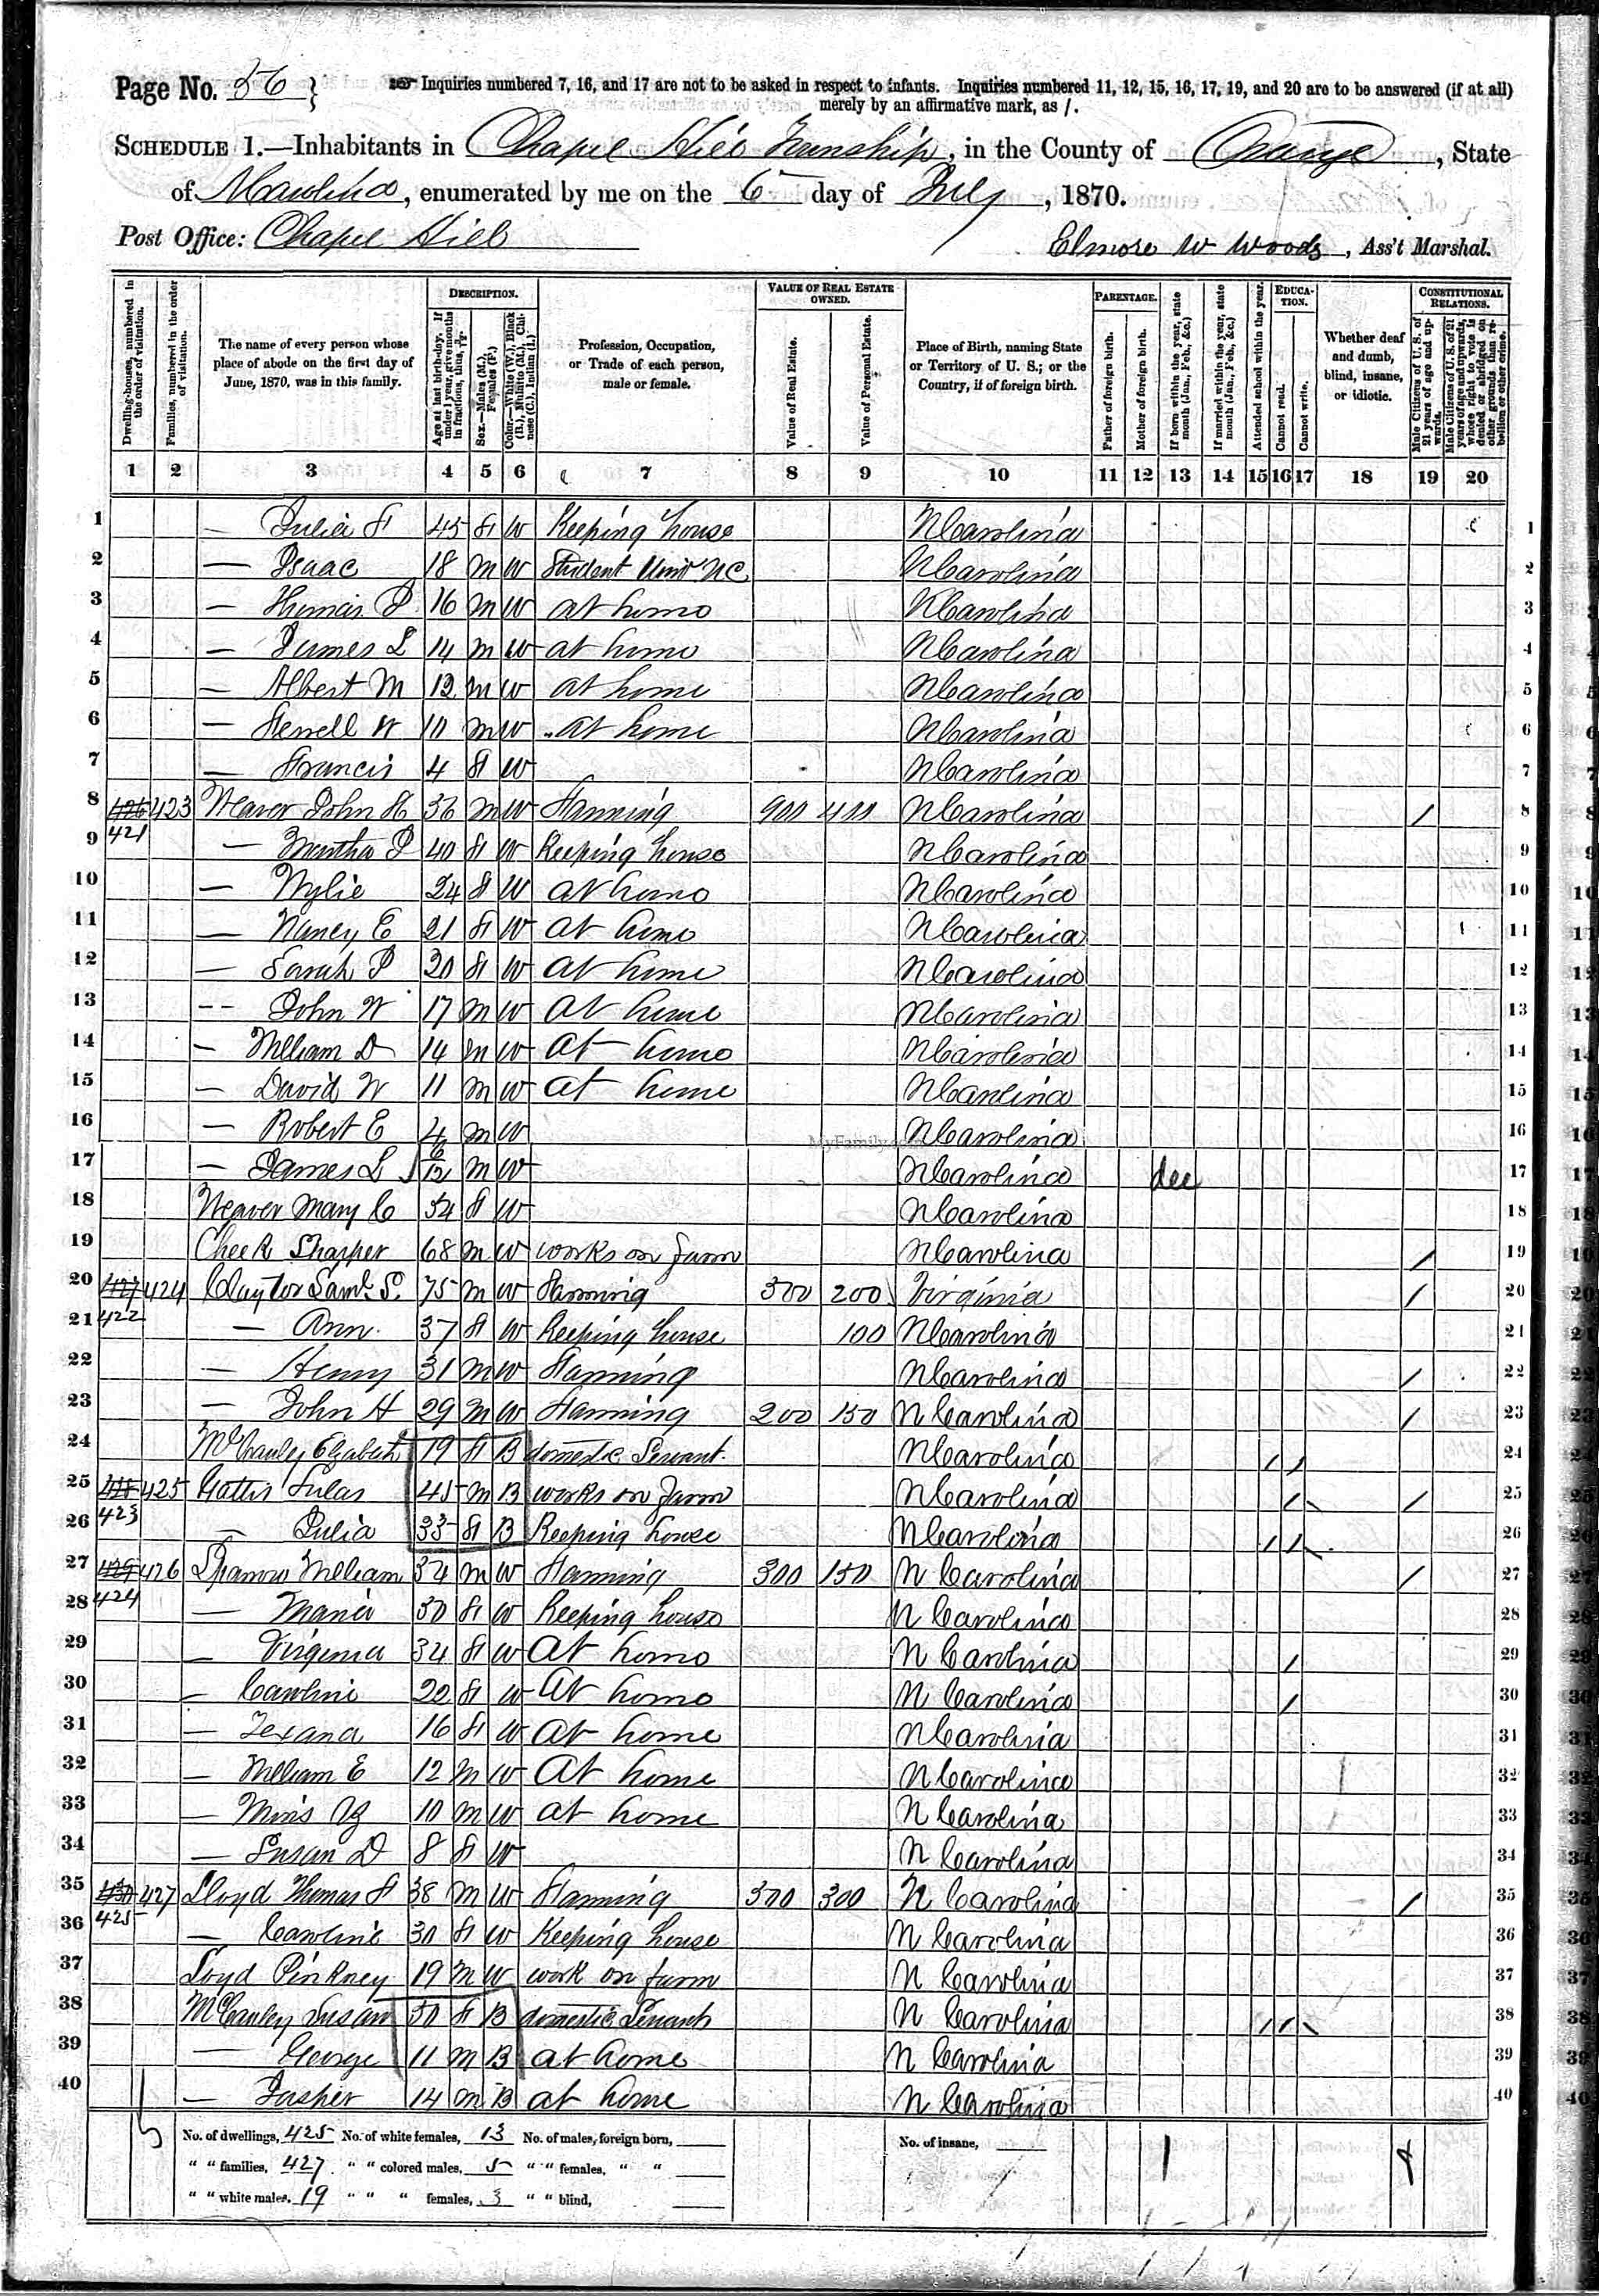 Page No. 56 } Inquiries numbered 7, 16, and 17 are not to be asked in respect to infants. Inquiries numbered 11, 12, 15, 16, 17, 19, and 20 are to be answered (if at all)
merely by an affirmative mark, as /.
SCHEDULE 1.—Inhabitants in Chapel Hill Township, in the County of Orange, State
of N Carolina, enumerated by me on the 6 day of July, 1870.
Post Office: Chapel Hill
Elmore W Woods, Ass't Marshal.
Dwelling-houses, numbered in the order of visitation.
Families, numbered in the order of visitation.
The name of every person whose place of abode on the first day of June, 1870, was in this family.
DESCRIPTION.
Age at last birth-day. If under 1 year, give months in fractions, thus, 3/12.
Sex.—Males (M.), Females (F.)
Color.—White (W.), Black (B.), Mulatto (M.), Chinese (C.), Indian (I.)
Profession, Occupation, or Trade of each person, male or female.
VALUE OF REAL ESTATE OWNED.
Value of Real Estate.
Value of Personal Estate.
Place of Birth, naming State or Territory of U. S.; or the Country, if of foreign birth.
PARENTAGE.
Father of foreign birth.
Mother of foreign birth.
If born within the year, state month (Jan., Feb., &c.)
If married within the year, state month (Jan., Feb., &c.)
Attended school within the year.
EDUCATION.
Cannot read.
Cannot write.
Whether deaf and dumb, blind, insane, or idiotic.
CONSTITUTIONAL RELATIONS.
Male Citizens of U. S. of 21 years of age and upwards.
Male Citizens of U. S. of 21 years of age and upwards, whose right to vote is denied or abridged on other grounds than rebellion or other crime.
1 2 3 4 5 6 7 8 9 10 11 12 13 14 15 16 17 18 19 20
1 — Julia F 45 F W Keeping house N Carolina 1
2 — Isaac 18 M W Student Univ NC N Carolina 2
3 — Thomas J 16 M W at home N Carolina 3
4 — James L 14 M W at home N Carolina 4
5 — Albert M 12 M W at home N Carolina 5
6 — W 10 M W at home N Carolina 6
7 — Francis 4 F W N Carolina 7
8 426 423 Weaver John H 36 M W Farming 900 400 N Carolina / 8
9 421 — Martha J 40 F W Keeping house N Carolina 9
10 — Wylie 24 F W at home N Carolina 10
11 — Nancy E 21 F W at home N Carolina 11
12 — Sarah J 20 F W at home N Carolina 12
13 -- John W 17 M W at home N Carolina 13
14 — William D 14 M W at home N Carolina 14
15 — David W 11 M W at home N Carolina 15
16 — Robert E 4 M W N Carolina 16
17 — James L 6/12 M W N Carolina dec 17
18 Weaver Mary C 54 F W N Carolina 18
19 Cheek Sharper 68 M W works on farm N Carolina / 19
20 427 424 Clayton Saml S. 75 M W Farming 300 200 Virginia / 20
21 422 — Ann 37 F W Keeping house 100 N Carolina 21
22 — Henry 31 M W Farming N Carolina / 22
23 — John H 29 M W Farming 200 150 N Carolina / 23
24 McCauley Elizabeth 19 F B domestic Servant. N Carolina / / 24
25 428 425 Gattis Silas 45 M B works on farm N Carolina / / 25
26 423 — Julia 35 F B Keeping house N Carolina / / 26
27 429 426 Sparrow William 34 M W Farming 300 150 N Carolina / 27
28 424 — Maria 30 F W Keeping house N Carolina 28
29 — Virginia 34 F W at home N Carolina / 29
30 — Caroline 20 F W at home N Carolina / 30
31 — Texana 16 F W at home N Carolina 31
32 — William E 12 M W at home N Carolina 32
33 — 10 M W at home N Carolina 33
34 — Susan D 8 F W N Carolina 34
35 430 427 Lloyd Thomas F 38 M W Farming 300 300 N Carolina / 35
36 425 — Caroline 30 F W Keeping house N Carolina 36
37 Loyd Pinkney 19 M W work on farm N Carolina 37
38 McCauley Susan 50 F B domestic Servant N Carolina / / 38
39 — George 11 M B at home N Carolina 39
40 — Jasper 14 M B at home N Carolina 40
No. of dwellings, 425 No. of white females, 13 No. of males, foreign born, No. of insane,
" " families, 427 " " colored males, 5 " " females, " "
" " white males, 19 " " " females, 3 " " blind,
MyFamily.com